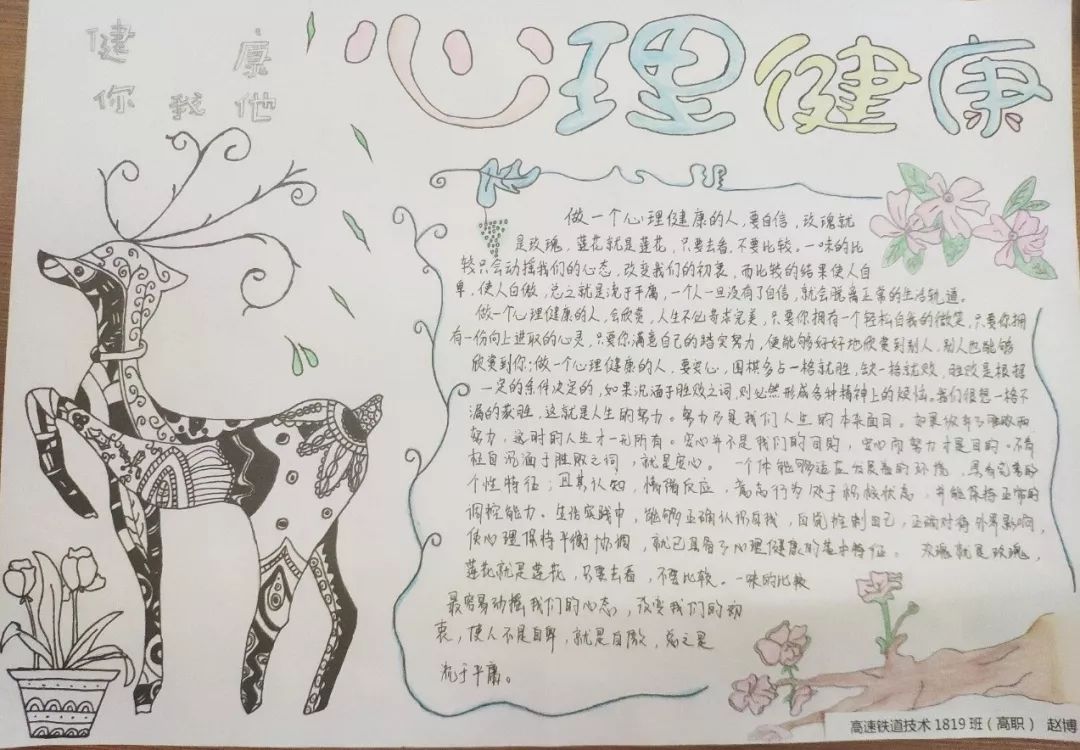 健 康
你 我 他
心理健康
做一个心理健康的人,要自信,玫瑰就
是玫瑰,莲花就是莲花,只要去看,不要比较,一味的比
较只会动摇我们的心态,改变我们的初衷,而比较的结果使人自
卑,使人自傲,总之就是流于平庸,一个人一旦没有了自信,就会脱离正常的生活轨道。
做一个心理健康的人,会欣赏,人生不必苛求完美,只要你拥有一个轻松自我的微笑,只要你拥
有一份向上进取的心灵,只要你满意自己的踏实努力,便能够好好地欣赏到别人,别人也能够
欣赏到你;做一个心理健康的人,要安心,围棋多占一格就胜,缺一格就败,胜败是根据
一定的条件决定的,如果沉涵于胜败之词,则必然形成各种精神上的烦恼。我们很想一格不
漏的获胜,这就是人生的努力。努力乃是我们人生的本来面目。如果放弃了
努力,这时的人生才一无所有。安心并不是我们的目的,安心而努力才是目的。不有
枉自沉涵于胜败之词,就是安心。一个体能够适应发展着的环境,具有完善的
个性特征;且其认知,情绪反应,意志行为处于积极状态,并能保持正常的
调控能力。生活实践中,能够正确认识自我,自觉控制自己,正确对待外界影响,
使心理保持平衡协调,就已具备了心理健康的基本特征。玫瑰就是玫瑰,
莲花就是莲花,只要去看,不要比较。一味的比较
最容易动摇我们的心态,改变我们的初
衷,使人不是自卑,就是自傲,总之是
流于平庸。
高速铁道技术1819班(高职) 赵博